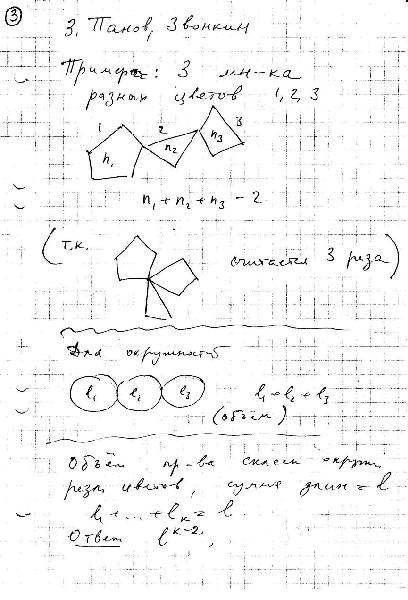 ③
3. Панов, Звонкин
Примеры: 3 мн-ка
разных цветов 1, 2, 3
1 2 3
n₁ n₂ n₃
n₁ + n₂ + n₃ - 2
(т.к. считается 3 раза)
Для окружностей
l₁ l₂ l₃ l₁ + l₂ + l₃
(объём)
Объём пр-ва склеек окружн.
разн цветов, сумма длин = l
l₁ + ... + lₖ = l
Ответ lᵏ⁻².